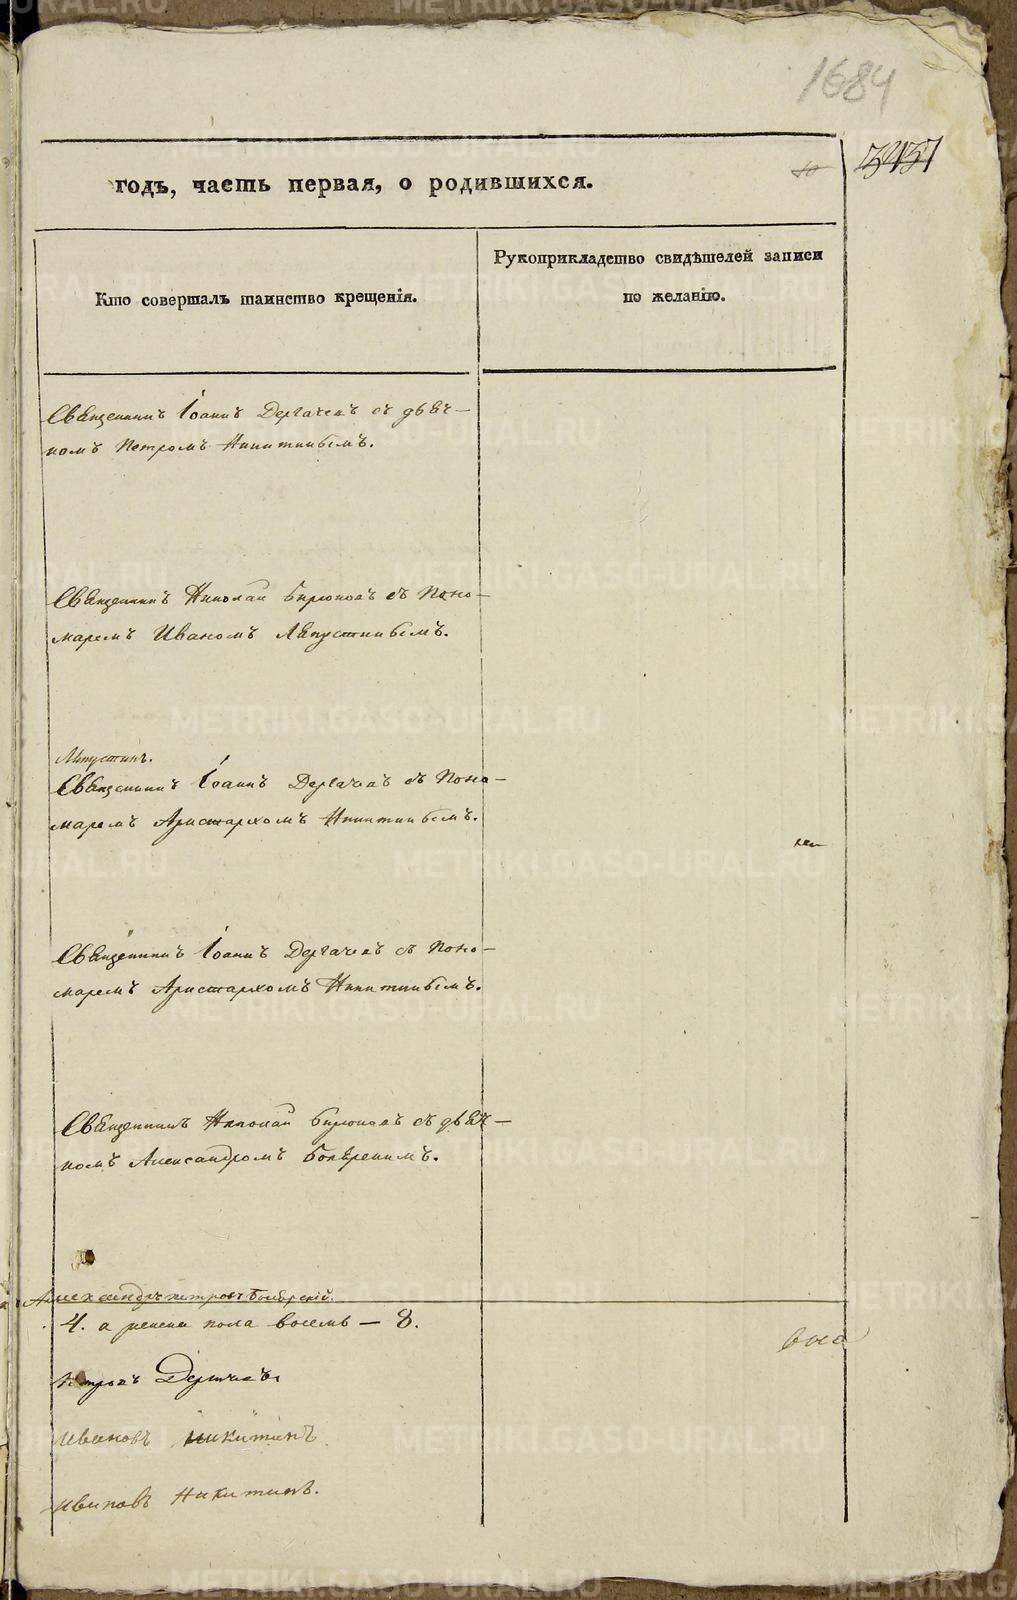 1684
годъ, часть первая, о родившихся.
Кто совершалъ таинство крещенія.
Рукоприкладство свидѣтелей записи
по желанію.
Священникъ Іоаннъ Дергачевъ съ дьяч-
комъ Петромъ Никитинымъ.
Священникъ Николай Бирюковъ съ Поно-
маремъ Иваномъ Ляпустинымъ.
Ляпустинъ.
Священникъ Іоаннъ Дергачевъ съ Поно-
маремъ Аристархомъ Никитинымъ.
Священникъ Іоаннъ Дергачевъ съ Поно-
маремъ Аристархомъ Никитинымъ.
Священникъ Николай Бирюковъ съ дьяч-
комъ Александромъ Боярскимъ.
Александръ Петровъ Боярскій.
4. а женска пола восемь - 8.
Петровъ Дергачевъ
Ивановъ Никитинъ
Ивановъ Никитинъ.
METRIKI.GASO-URAL.RU